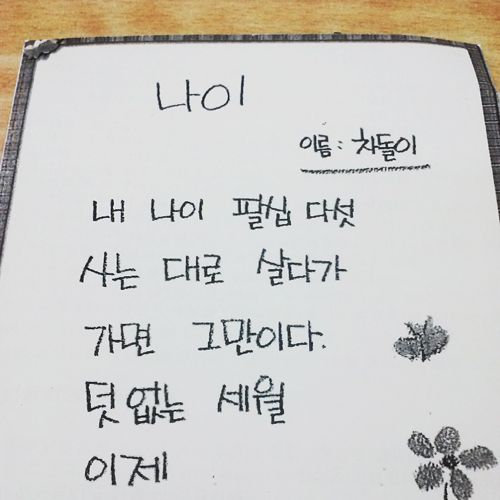 나이
이름: 차돌이
내 나이 팔십 다섯
사는 대로 살다가
가면 그만이다.
덧없는 세월
이제